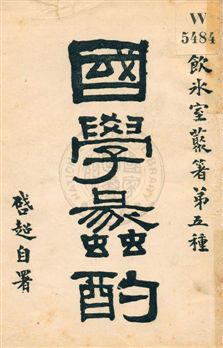 W
5484
飲冰室叢箸第五種
國學蠡酌
啓超自署